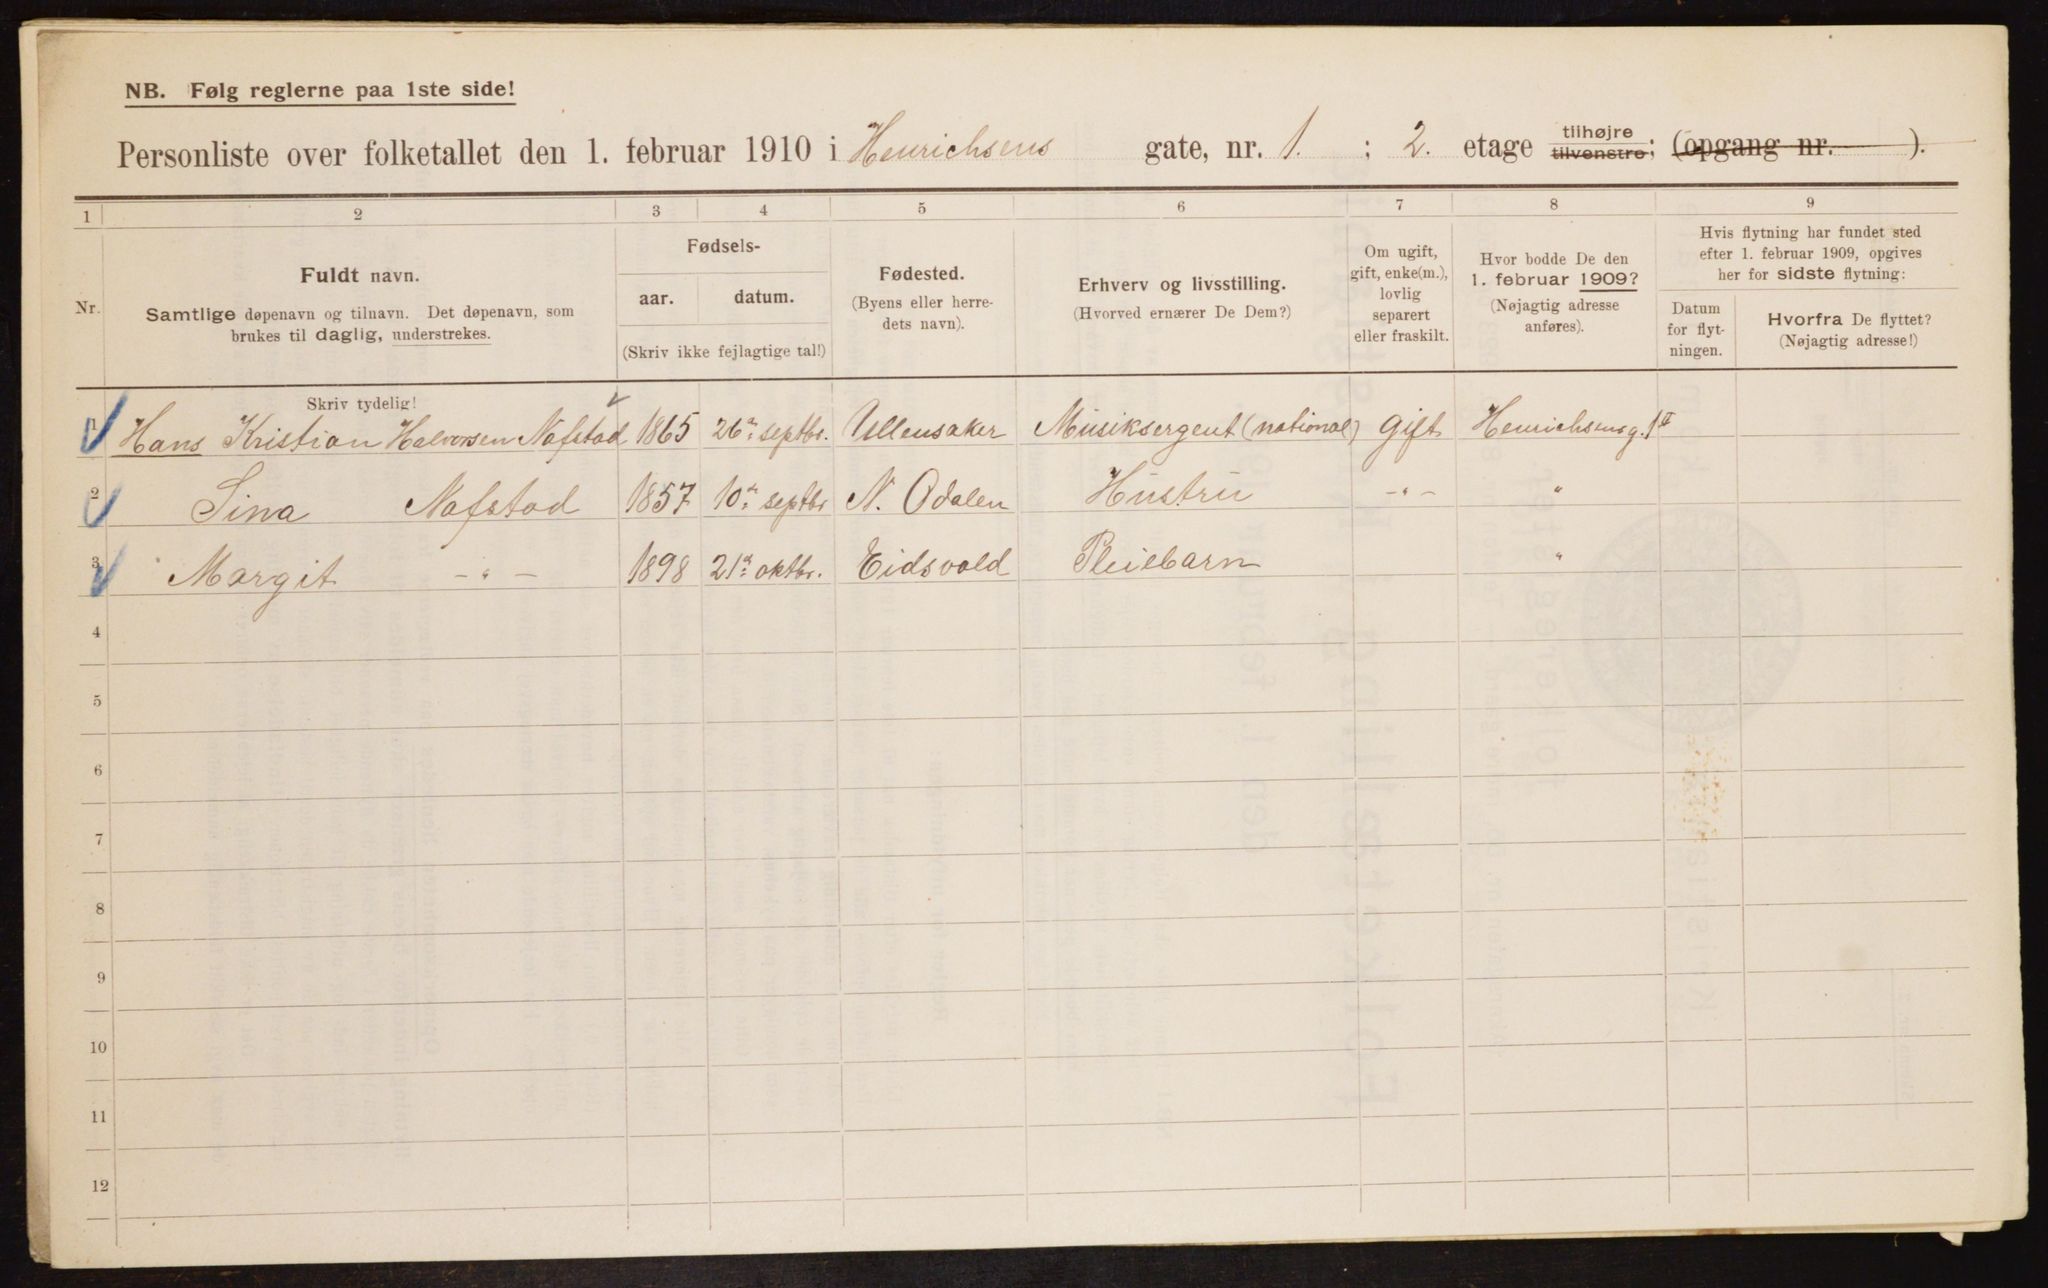 NB. Følg reglerne paa 1ste side!
Personliste over folketallet den 1. februar 1910 i Henrichsens gate, nr. 1. ; 2. etage tilhøjre tilvenstre; (opgang nr. ).
1 2 3 4 5 6 7 8 9
Nr.
Fuldt navn.
Samtlige døpenavn og tilnavn. Det døpenavn, som
brukes til daglig, understrekes.
Fødsels-
aar. datum.
(Skriv ikke fejlagtige tal!)
Fødested.
(Byens eller herre-
dets navn).
Erhverv og livsstilling.
(Hvorved ernærer De Dem?)
Om ugift,
gift, enke(m.),
lovlig
separert
eller fraskilt.
Hvor bodde De den
1. februar 1909?
(Nøjagtig adresse
anføres).
Hvis flytning har fundet sted
efter 1. februar 1909, opgives
her for sidste flytning:
Datum
for flyt-
ningen.
Hvorfra De flyttet?
(Nøjagtig adresse!)
Skriv tydelig!
1 Hans Kristian Halvorsen Nafstad 1865 26de septbr. Ullensaker Musiksergent (national) Gift Henrichsensg. 1 II
2 Sina Nafstad 1857 10de septbr N. Odalen Hustru -"- "
3 Margit -"- 1898 21de oktbr. Eidsvold Pleiebarn "
4
5
6
7
8
9
10
11
12